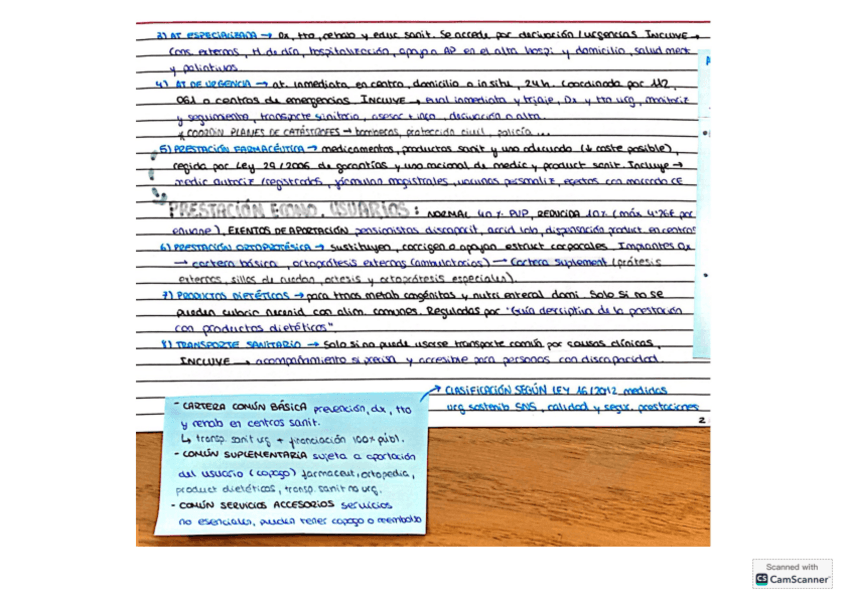 3) AT ESPECIALIZADA → Dx, tto, rehab y educ sanit. Se accede por derivación / urgencias INCLUYE →
cons. externas, H. de día, hospitalización, apoyo a AP en el alta hospi y domicilio, salud ment
y paliativos
4) AT DE URGENCIA → at. inmediata en centro, domicilio o in situ, 24h. Coordinada por 112,
061 o centros de emergencias. INCLUYE → eval inmediata y triaje, Dx y tto urg, monitoriz
y seguimiento, transporte sanitario, asesor + inga, derivación o alta.
* COORDIN PLANES DE CATÁSTROFES → bomberos, protección civil, policía ...
5) PRESTACIÓN FARMACÉUTICA → medicamentos, productos sanit y uso adecuado (↓ coste posible),
regida por Ley 29/2006 de garantías y uso racional de medic y product sanit. Incluye →
medic autoriz/registrados, fórmulas magistrales, vacunas personaliz, efectos con marcado CE
PRESTACIÓN ECONO. USUARIOS: NORMAL 40% PVP, REDUCIDA 10% (máx 4'26€ por
envase), EXENTOS DE APORTACIÓN pensionistas discapacit, accid lab, dispensación product en centros
6) PRESTACIÓN ORTOPROTÉSICA → sustituyen, corrigen o apoyan estruct corporales. Implantes Qx
→ cartera básica, ortoprótesis externas (ambulatorios) → Cartera suplement (prótesis
externas, sillas de ruedas, ortesis y ortoprótesis especiales).
7) PRODUCTOS DIETÉTICOS → para ttnos metab congénitos y nutri enteral domi. Solo si no se
pueden cubrir necesid con alim. comunes. Reguladas por "Guía descriptiva de la prestación
con productos dietéticos".
8) TRANSPORTE SANITARIO → solo si no puede usarse transporte común por causas clínicas,
INCLUYE → acompañamiento si precisa y accesible para personas con discapacidad.
CLASIFICACIÓN SEGÚN LEY 16/2012 medidas
urg sostenib SNS, calidad y segur. prestaciones
2
- CARTERA COMÚN BÁSICA prevención, dx, tto
y rehab en centros sanit.
↳ transp. sanit urg + financiación 100% públ.
- COMÚN SUPLEMENTARIA sujeta a aportación
del usuario (copago) farmaceut, ortopedia,
product dietéticos, transp. sanit no urg.
- COMÚN SERVICIOS ACCESORIOS servicios
no esenciales, pueden tener copago o reembolso
Scanned with
CS CamScanner